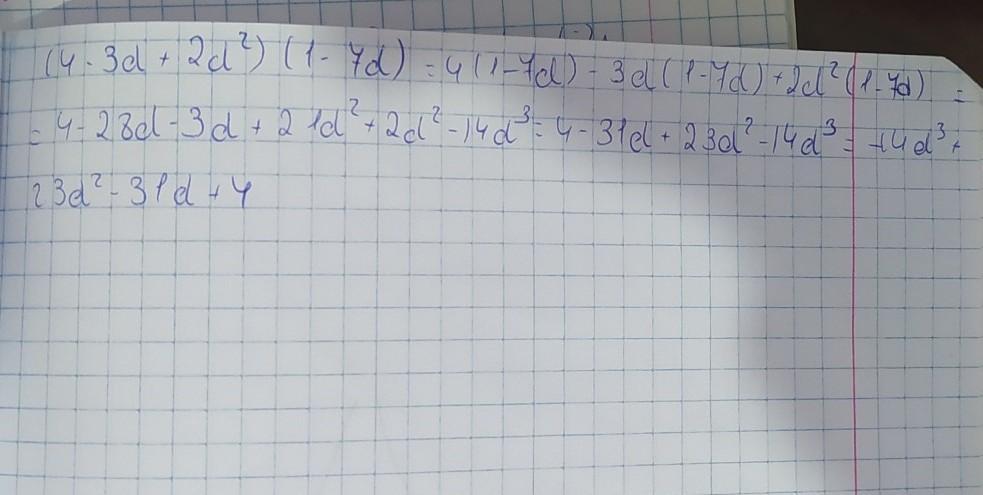 (4 - 3d + 2d²) (1 - 7d) = 4 (1 - 7d) - 3d (1 - 7d) + 2d² (1 - 7d) =
= 4 - 28d - 3d + 21d² + 2d² - 14d³ = 4 - 31d + 23d² - 14d³ = -14d³ +
23d² - 31d + 4